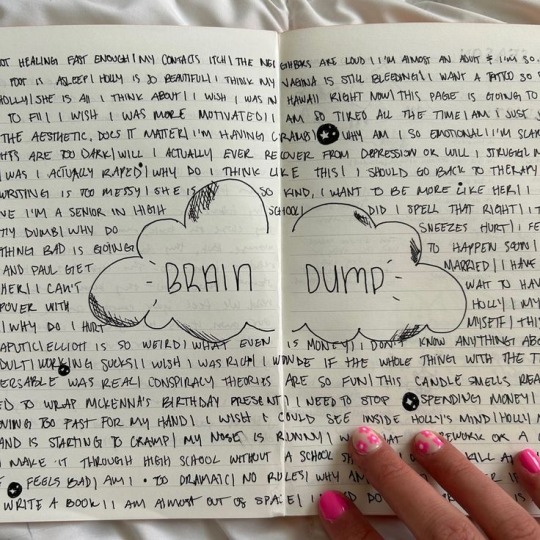 OT HEALING FAST ENOUGH | MY CONTACTS ITCH | THE NEIGHBORS ARE LOUD | I'M ALMOST AN ADULT & I'M SO
FOOT IS ASLEEP | HOLLY IS SO BEAUTIFUL | I THINK MY VAGINA IS STILL BLEEDING | I WANT A TATTOO SO
HOLLY | SHE IS ALL I THINK ABOUT | I WISH I WAS IN HAWAII RIGHT NOW | THIS PAGE IS GOING TO
TO FILL | I WISH I WAS MORE MOTIVATED | I AM SO TIRED ALL THE TIME | AM I JUST
THE AESTHETIC, DOES IT MATTER | I'M HAVING CRAMPS | WHY AM I SO EMOTIONAL | I'M SCAR
HTS ARE TOO DARK | WILL I ACTUALLY EVER RECOVER FROM DEPRESSION OR WILL I STRUGGLE
WAS I ACTUALLY RAPED | WHY DO I THINK LIKE THIS | I SHOULD GO BACK TO THERAPY
WRITING IS TOO MESSY | SHE IS SO KIND, I WANT TO BE MORE LIKE HER | I
VE I'M A SENIOR IN HIGH SCHOOL | DID I SPELL THAT RIGHT | I
TTY DUMB | WHY DO SNEEZES HURT | I FE
THING BAD IS GOING TO HAPPEN SOON |
AND PAUL GET MARRIED | I HAVE
HER | I CAN'T WAIT TO HAV
POVER WITH HOLLY | I MY
| WHY DO I HURT MYSELF | THIS
APUTIC | ELLIOTT IS SO WEIRD | WHAT EVEN IS MONEY | I DON'T KNOW ANYTHING ABO
DULT | WORKING SUCKS | I WISH I WAS RICH | I WONDE IF THE WHOLE THING WITH THE T
ERSABLE WAS REAL | CONSPIRACY THEORIES ARE SO FUN | THIS CANDLE SMELLS REA
ED TO WRAP MCKENNA'S BIRTHDAY PRESENT | I NEED TO STOP SPENDING MONEY |
NING TOO FAST FOR MY HAND | I WISH I COULD SEE INSIDE HOLLY'S MIND | HOLLY
AND IS STARTING TO CRAMP | MY NOSE IS RUNNY | I OR A
I MAKE IT THROUGH HIGH SCHOOL WITHOUT A SCHOOL
FEELS BAD | AM I TO DRAMATIC | NO RULES | WHY AM
WRITE A BOOK | I AM ALMOST OUT OF SPACE |
BRAIN DUMP